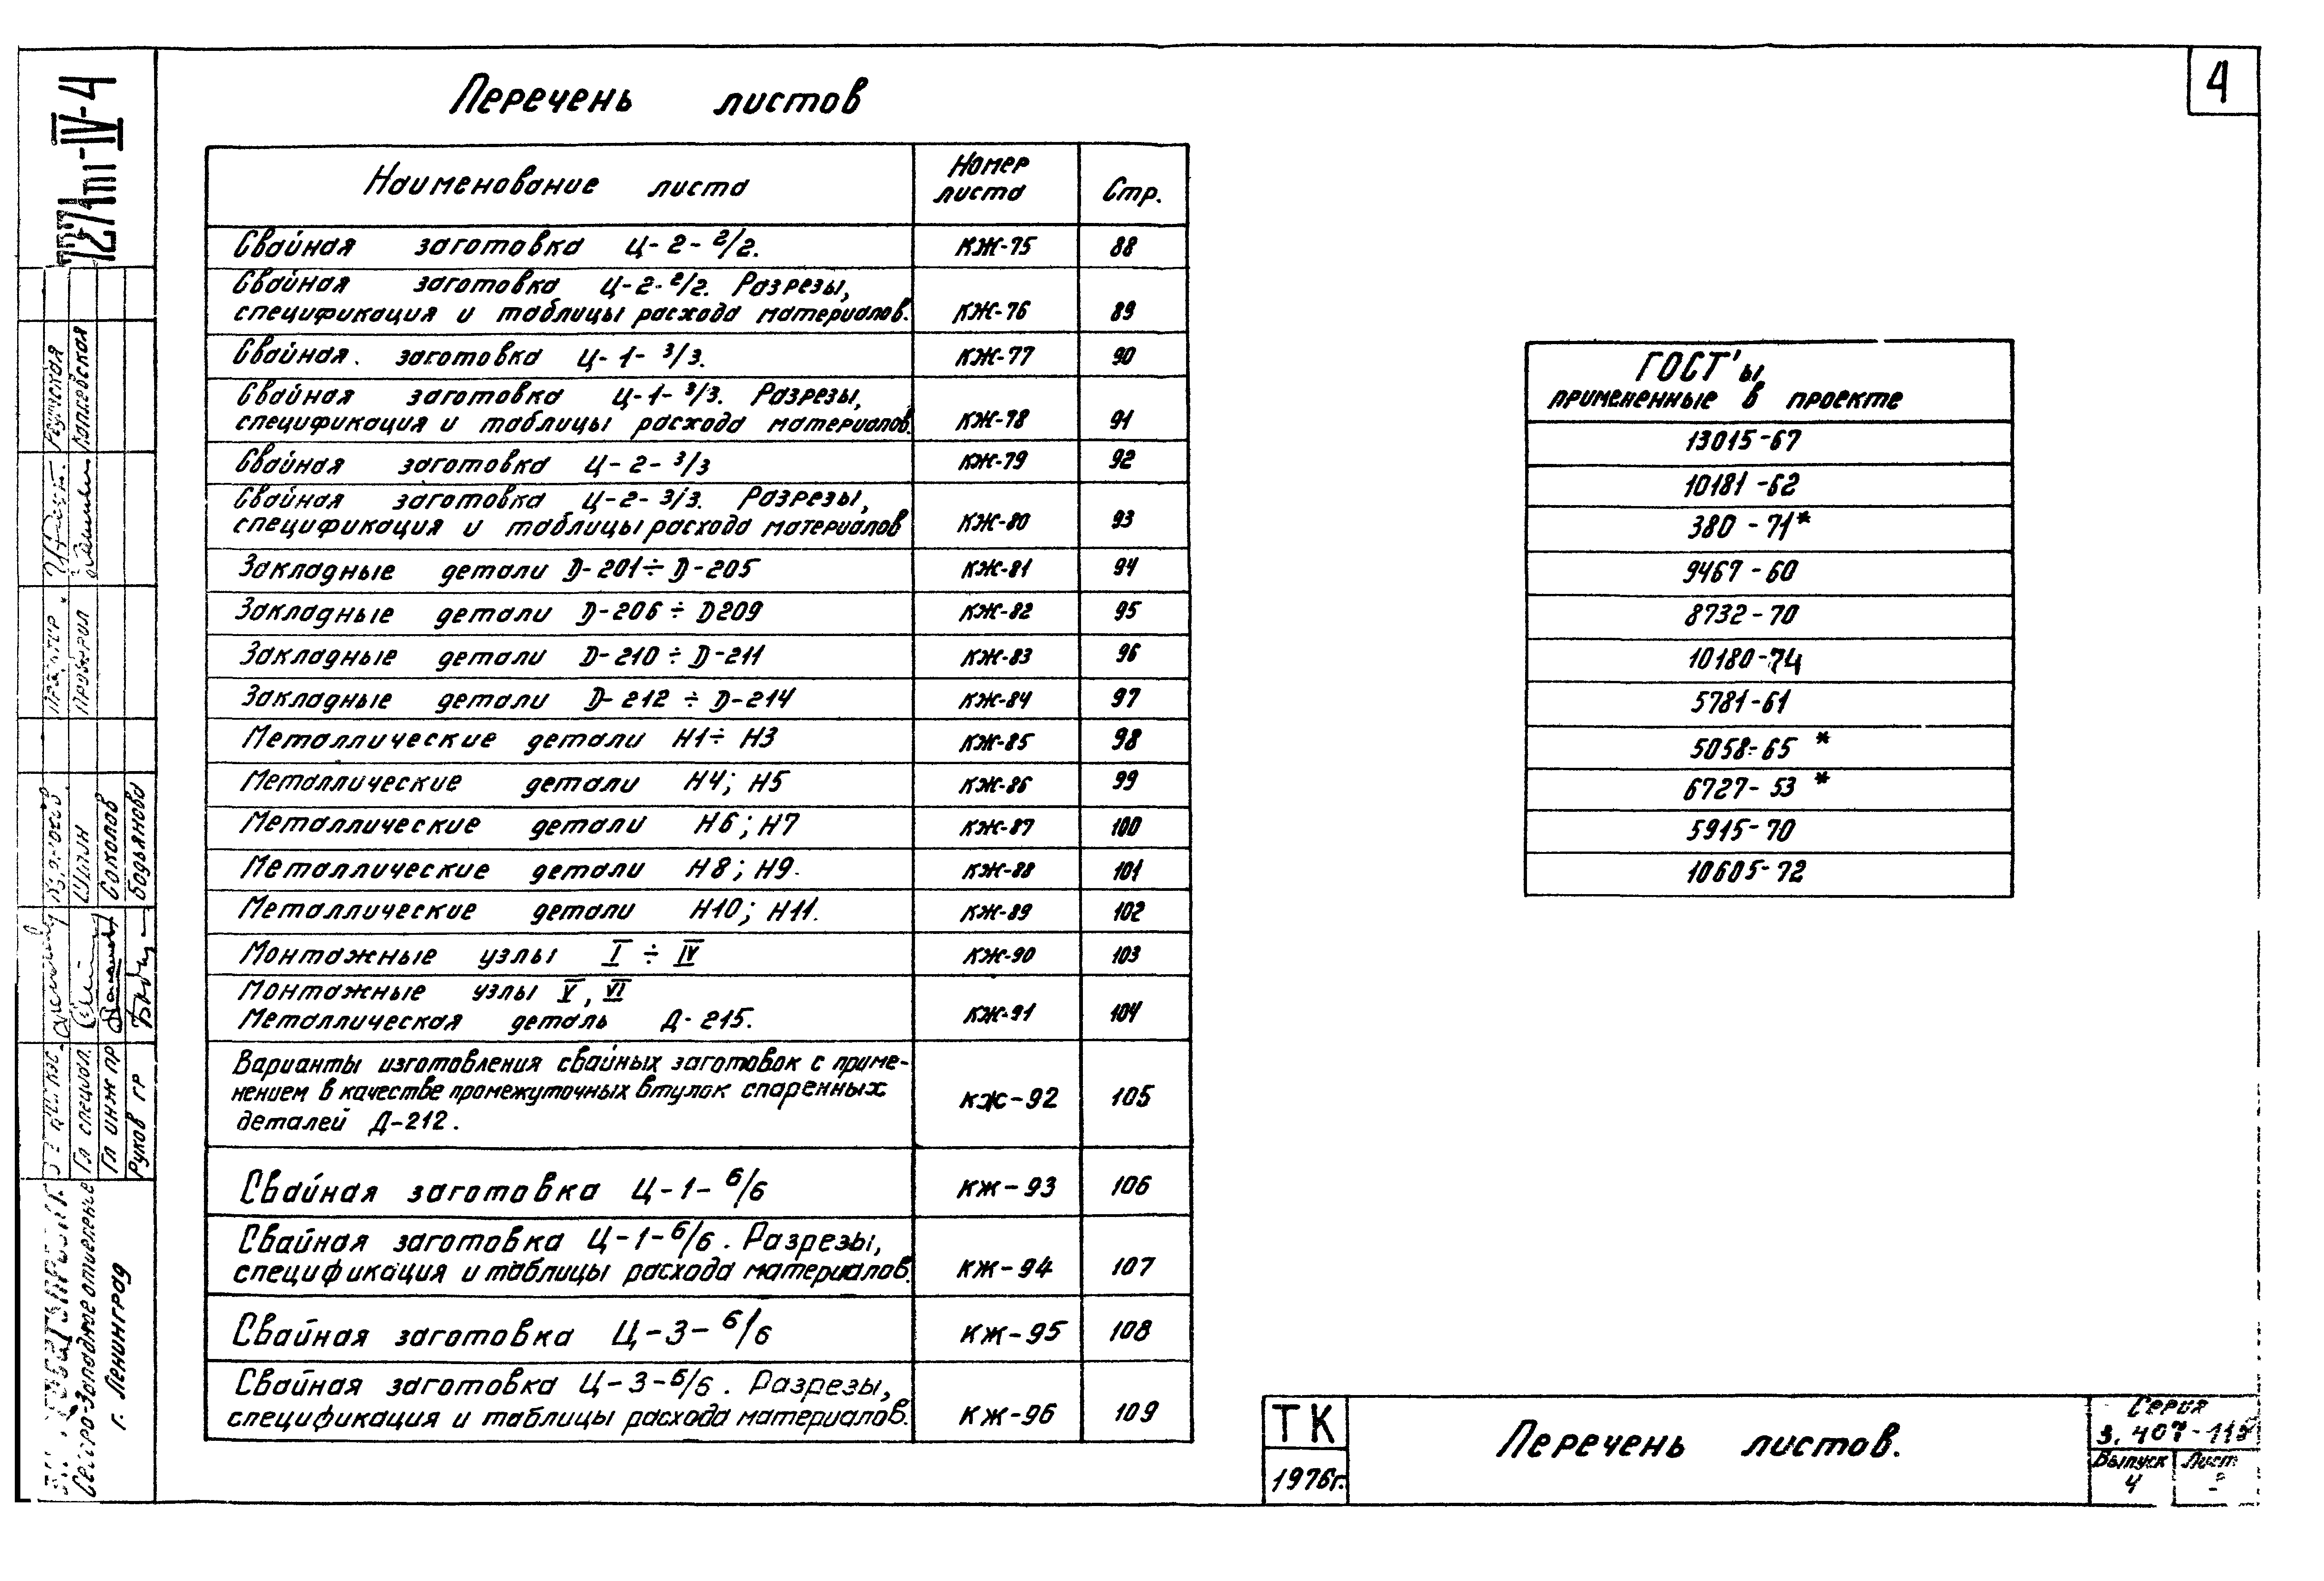 4
Перечень листов
Наименование листа
Номер листа
Стр.
Свайная заготовка Ц-2-2/2. КЖ-75 88
Свайная заготовка Ц-2-2/2. Разрезы,
спецификация и таблицы расхода материалов. КЖ-76 89
Свайная. заготовка Ц-1-3/3. КЖ-77 90
Свайная заготовка Ц-1-3/3. Разрезы,
спецификация и таблицы расхода материалов. КЖ-78 91
Свайная заготовка Ц-2-3/3 КЖ-79 92
Свайная заготовка Ц-2-3/3. Разрезы,
спецификация и таблицы расхода материалов КЖ-80 93
Закладные детали D-201÷D-205 КЖ-81 94
Закладные детали D-206÷D209 КЖ-82 95
Закладные детали D-210÷D-211 КЖ-83 96
Закладные детали D-212÷D-214 КЖ-84 97
Металлические детали Н1÷Н3 КЖ-85 98
Металлические детали Н4; Н5 КЖ-86 99
Металлические детали Н6; Н7 КЖ-87 100
Металлические детали Н8; Н9. КЖ-88 101
Металлические детали Н10; Н11. КЖ-89 102
Монтажные узлы I ÷ IV КЖ-90 103
Монтажные узлы V, VI
Металлическая деталь Д-215. КЖ-91 104
Варианты изготовления свайных заготовок с приме-
нением в качестве промежуточных втулок спаренных
деталей Д-212. КЖ-92 105
Свайная заготовка Ц-1-6/6 КЖ-93 106
Свайная заготовка Ц-1-6/6. Разрезы,
спецификация и таблицы расхода материалов. КЖ-94 107
Свайная заготовка Ц-3-6/6 КЖ-95 108
Свайная заготовка Ц-3-6/6. Разрезы,
спецификация и таблицы расхода материалов. КЖ-96 109
ГОСТ'ы
примененные в проекте
13015-67
10181-62
380-71*
9467-60
8732-70
10180-74
5781-61
5058-65*
6727-53*
5915-70
10605-72
ТК
1976г.
Перечень листов.
Серия
3.407-115
Выпуск 4
Лист
Гл специал. Шпин
Гл инж пр Соколов
Руков гр Бодьянова
Проверил
Северо-Западное отделение
г. Ленинград